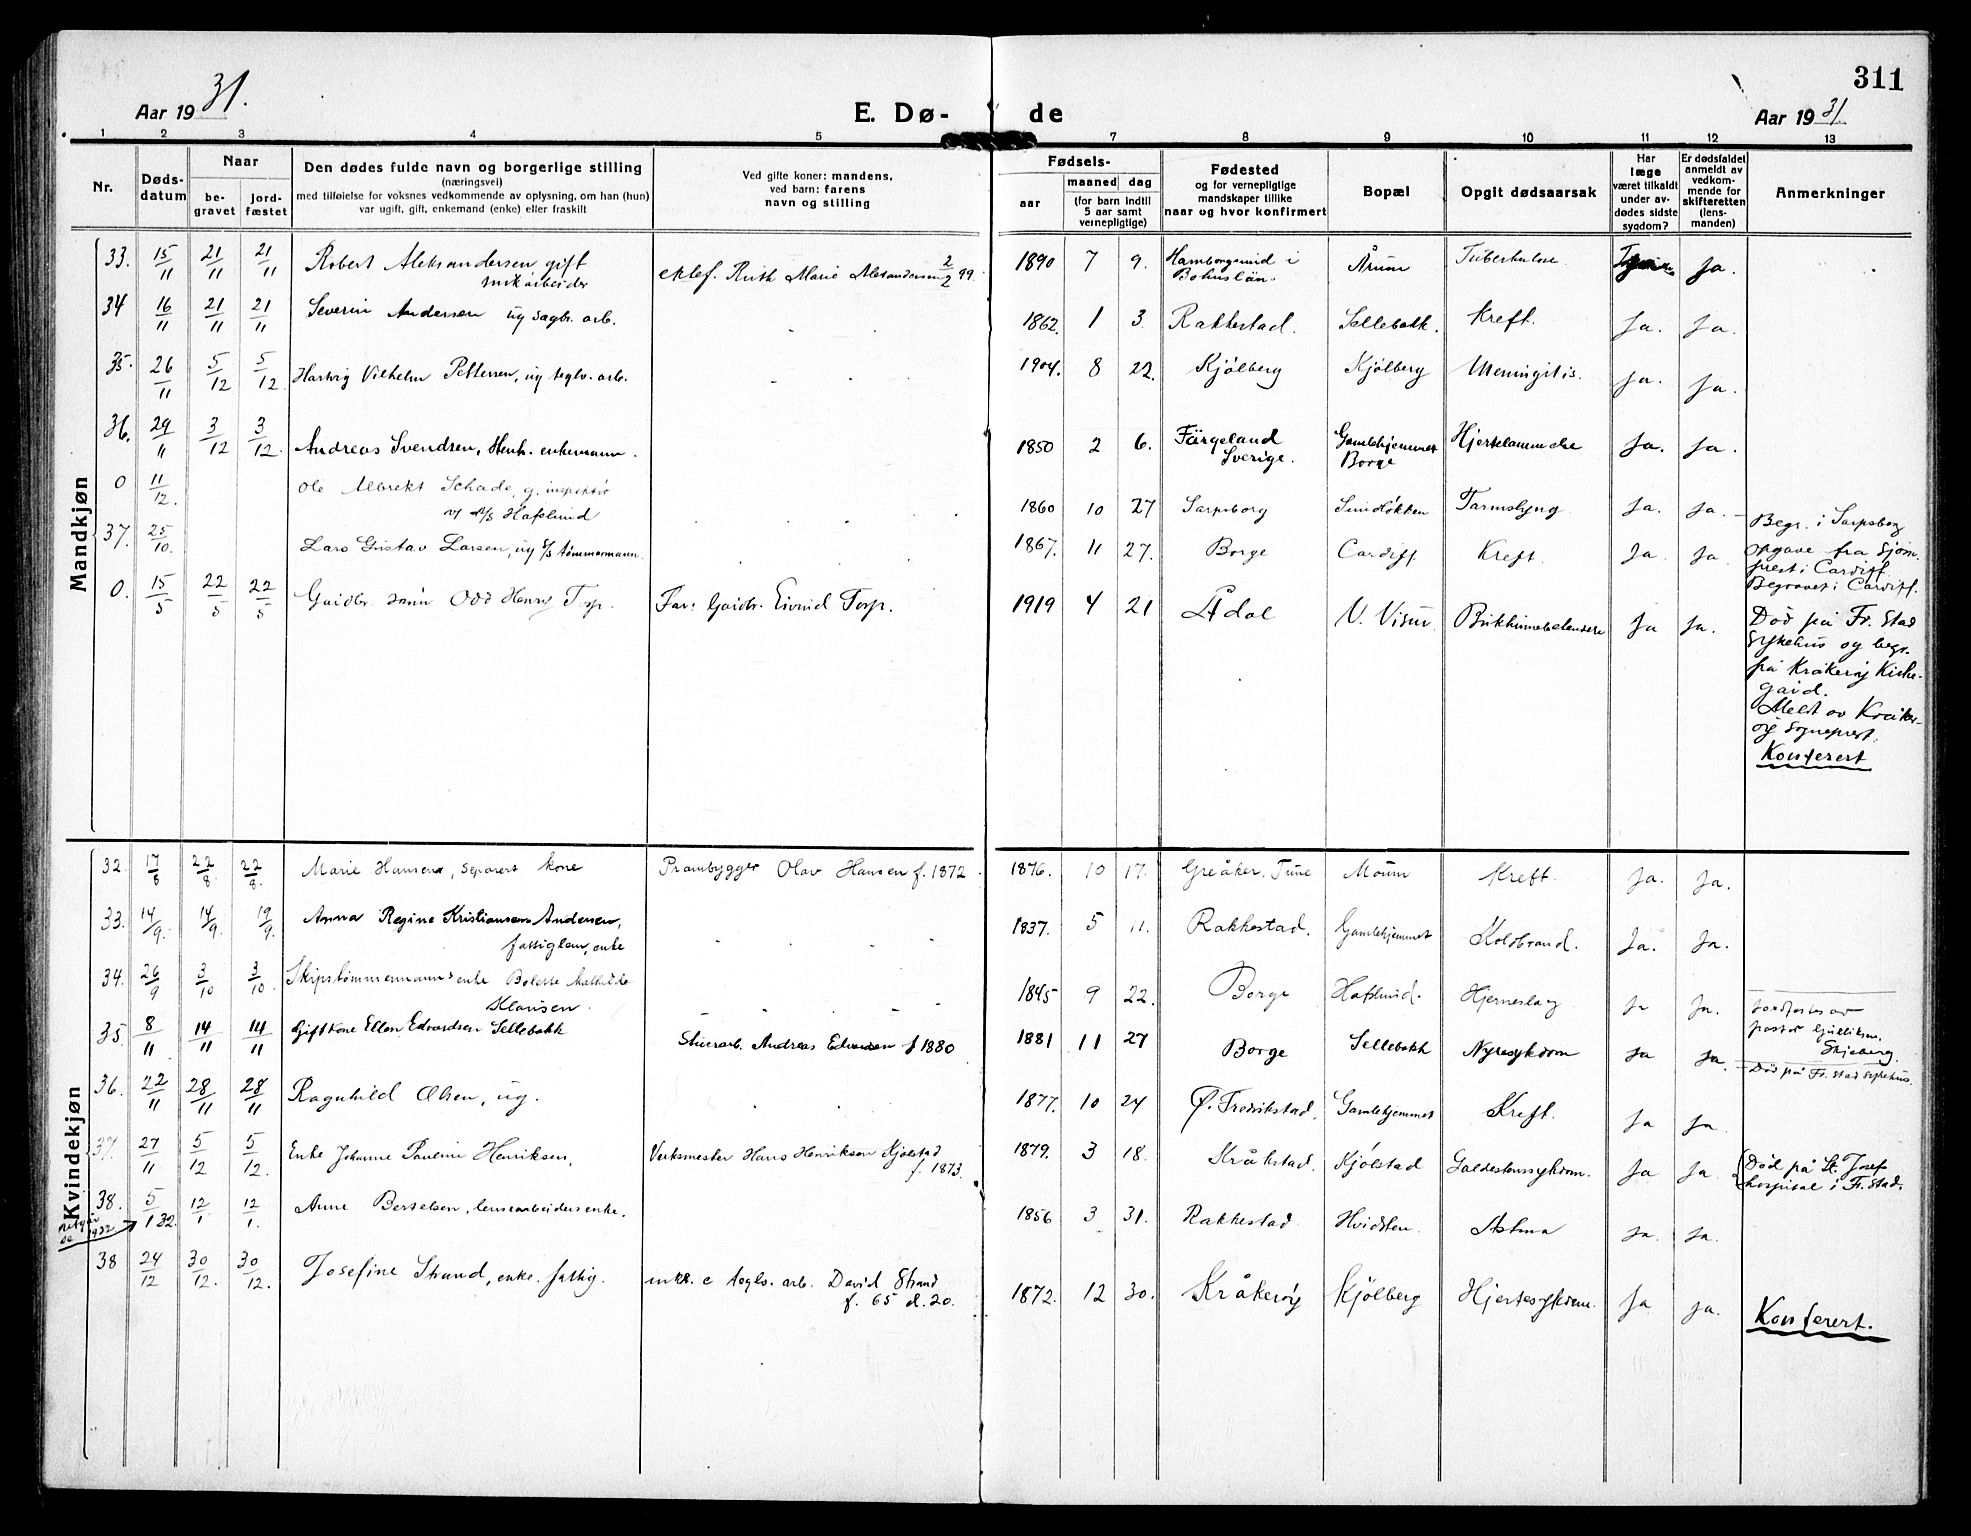 311
Aar 1931.
E. Dø-
de
Aar 1931.
1 2 3 4 5 7 8 9 10 11 12 13
Nr.
Dødsdatum
Naar
begravet
jordfæstet
Den dødes fulde navn og borgerlige stilling
(næringsvei)
med tilføielse for voksnes vedkommende av oplysning, om han (hun)
var ugift, gift, enkemand (enke) eller fraskilt
Ved gifte koner: mandens,
ved barn: farens
navn og stilling
Fødsels-
aar
maaned dag
(for barn indtil
5 aar samt
vernepligtige)
Fødested
og for vernepligtige
mandskaper tillike
naar og hvor konfirmert
Bopæl
Opgit dødsaarsak
Har
læge
været tilkaldt
under avdødes
sidste
sygdom?
Er dødsfaldet
anmeldt av
vedkommende
for
skifteretten
(lensmanden)
Anmerkninger
Mandkjøn
33. 15/11 21/11 21/11 Robert Aleksandersen gift ektef. Ruth Marie Alexandersen 2/2 99. 1890 7 9. i Bohuslän Årum Tuberkulose Ja.
34 16/11 21/11 21/11 Severin Andersen ug sagbr. arb. 1862. 1 3. Rakkestad. Sellebakk. Kreft. Ja. Ja.
35. 26/11 5/12 5/12 Hartvig Vilhelm Pettersen, ug teglv. arb. 1904. 8 22. Kjölberg Kjölberg Meningitis. Ja. Ja.
36. 29/11 3/12 3/12. Andreas Svendsen, Stenh. enkemann. 1850 2 6. Färgeland Sverige. Gamlehjemmet Borge Hjertelammelse Ja. Ja.
0 11/12. Ole Albrekt Schade, g. inspektör v/ A/S Hafslund 1860 10 27 Sarpsborg Sundløkken Tarmslyng Ja. Ja. Begr. i Sarpsborg
37. 25/10. Lars Gustav Larsen, ug S/S tømmermann. 1867. 11 27. Borge Cardiff Kreft. Ja. Ja opgave fra Sjømprest i Cardiff Begravet i Cardiff.
0. 15/5 22/5 22/5 Gaardbr. sønn Odd Henry Torp. Far: Gaardbr. Eivind Torp. 1919 4 21 Ådal V. Visur. Bukhinnebetendelse Ja Ja. Död på Fr. Stad
Sykehus og begr.
på Kråkeröy Kirkegaard.
Meldt av Kråkeröy
Sogneprest.
Konferert
Kvindekjøn
32. 17/8 22/8. 22/8. Marie Hansen, separert kone Prambygger Olav Hansen f. 1872. 1876. 10 17. Greåker, Tune Moum Kreft. Ja. Ja.
33. 14/9. 14/9. 19/9. Anna Regine Kristiansen Andersen, fattiglem, enke 1837. 5 11. Rakkestad. Gamlehjemmet Koldbrand. Ja. Ja.
34. 26/9 3/10 3/10. Skipstömmermanns enke Bolette Mathilde Klausen. 1845 9 22. Borge Hafslund. Hjerneslag Ja Ja. Jordfestes av
pastor Gulliksen,
Skjeberg.
35. 8/11 14/11 14/11 Gift kone Ellen Edvardsen Sellebakk Stuerarb. Andreas Edvardsen f 1880 1881 11 27 Borge Sellebakk Nyresykdom Ja Ja. Död på Fr. stad sykehus.
36. 22/11 28/11 28/11 Ragnhild Olsen, ug. 1877. 10 24 Ø. Fredrikstad. Gamlehjemmet Kreft. Ja Ja.
37. 27/11 5/12 5/12. Enke Johanne Pauline Henriksen, Verksmester Hans Henriksen Kjölstad f. 1873. 1879. 3 18. Kråkstad. Kjölstad Galdestenssykdom. Ja Ja. Död på St. Josef
hospital i Fr. stad.
38. 5/1 32. 12/1 12/1. Anne Bertelsen, lensearbeiders enke. 1856 3 31. Rakkestad. Hvidsten Astma Ja. Ja.
1932
38 24/12 30/12. 30/12. Josefine Strand, enke. fattig. enke e teglv. arb. David Strand f. 65 d. 20. 1872. 12 30. Kråkeröy Kjölberg Hjertesykdom. Ja. Ja. Konferert.